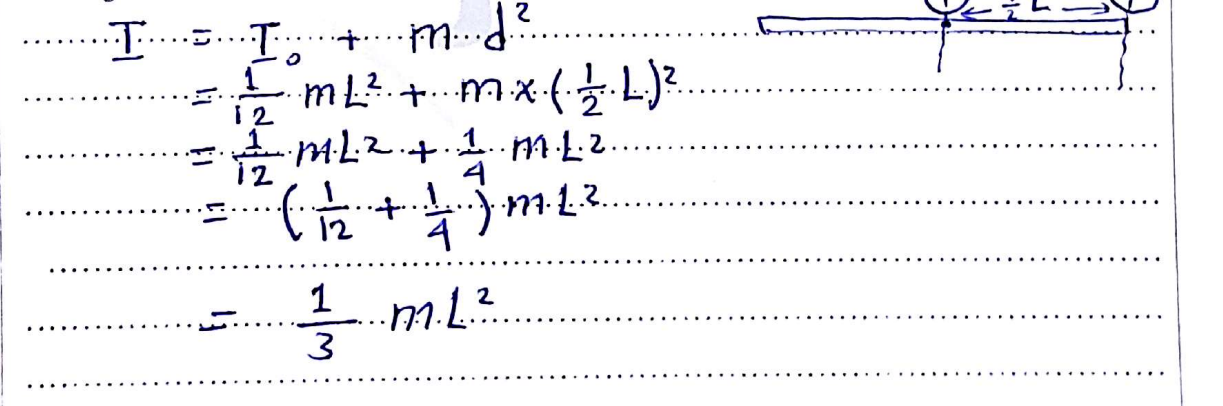 ½ L
I = I₀ + m d²
= 1/12 mL² + m x (½ L)²
= 1/12 mL² + 1/4 mL²
= (1/12 + 1/4) mL²
= 1/3 mL²